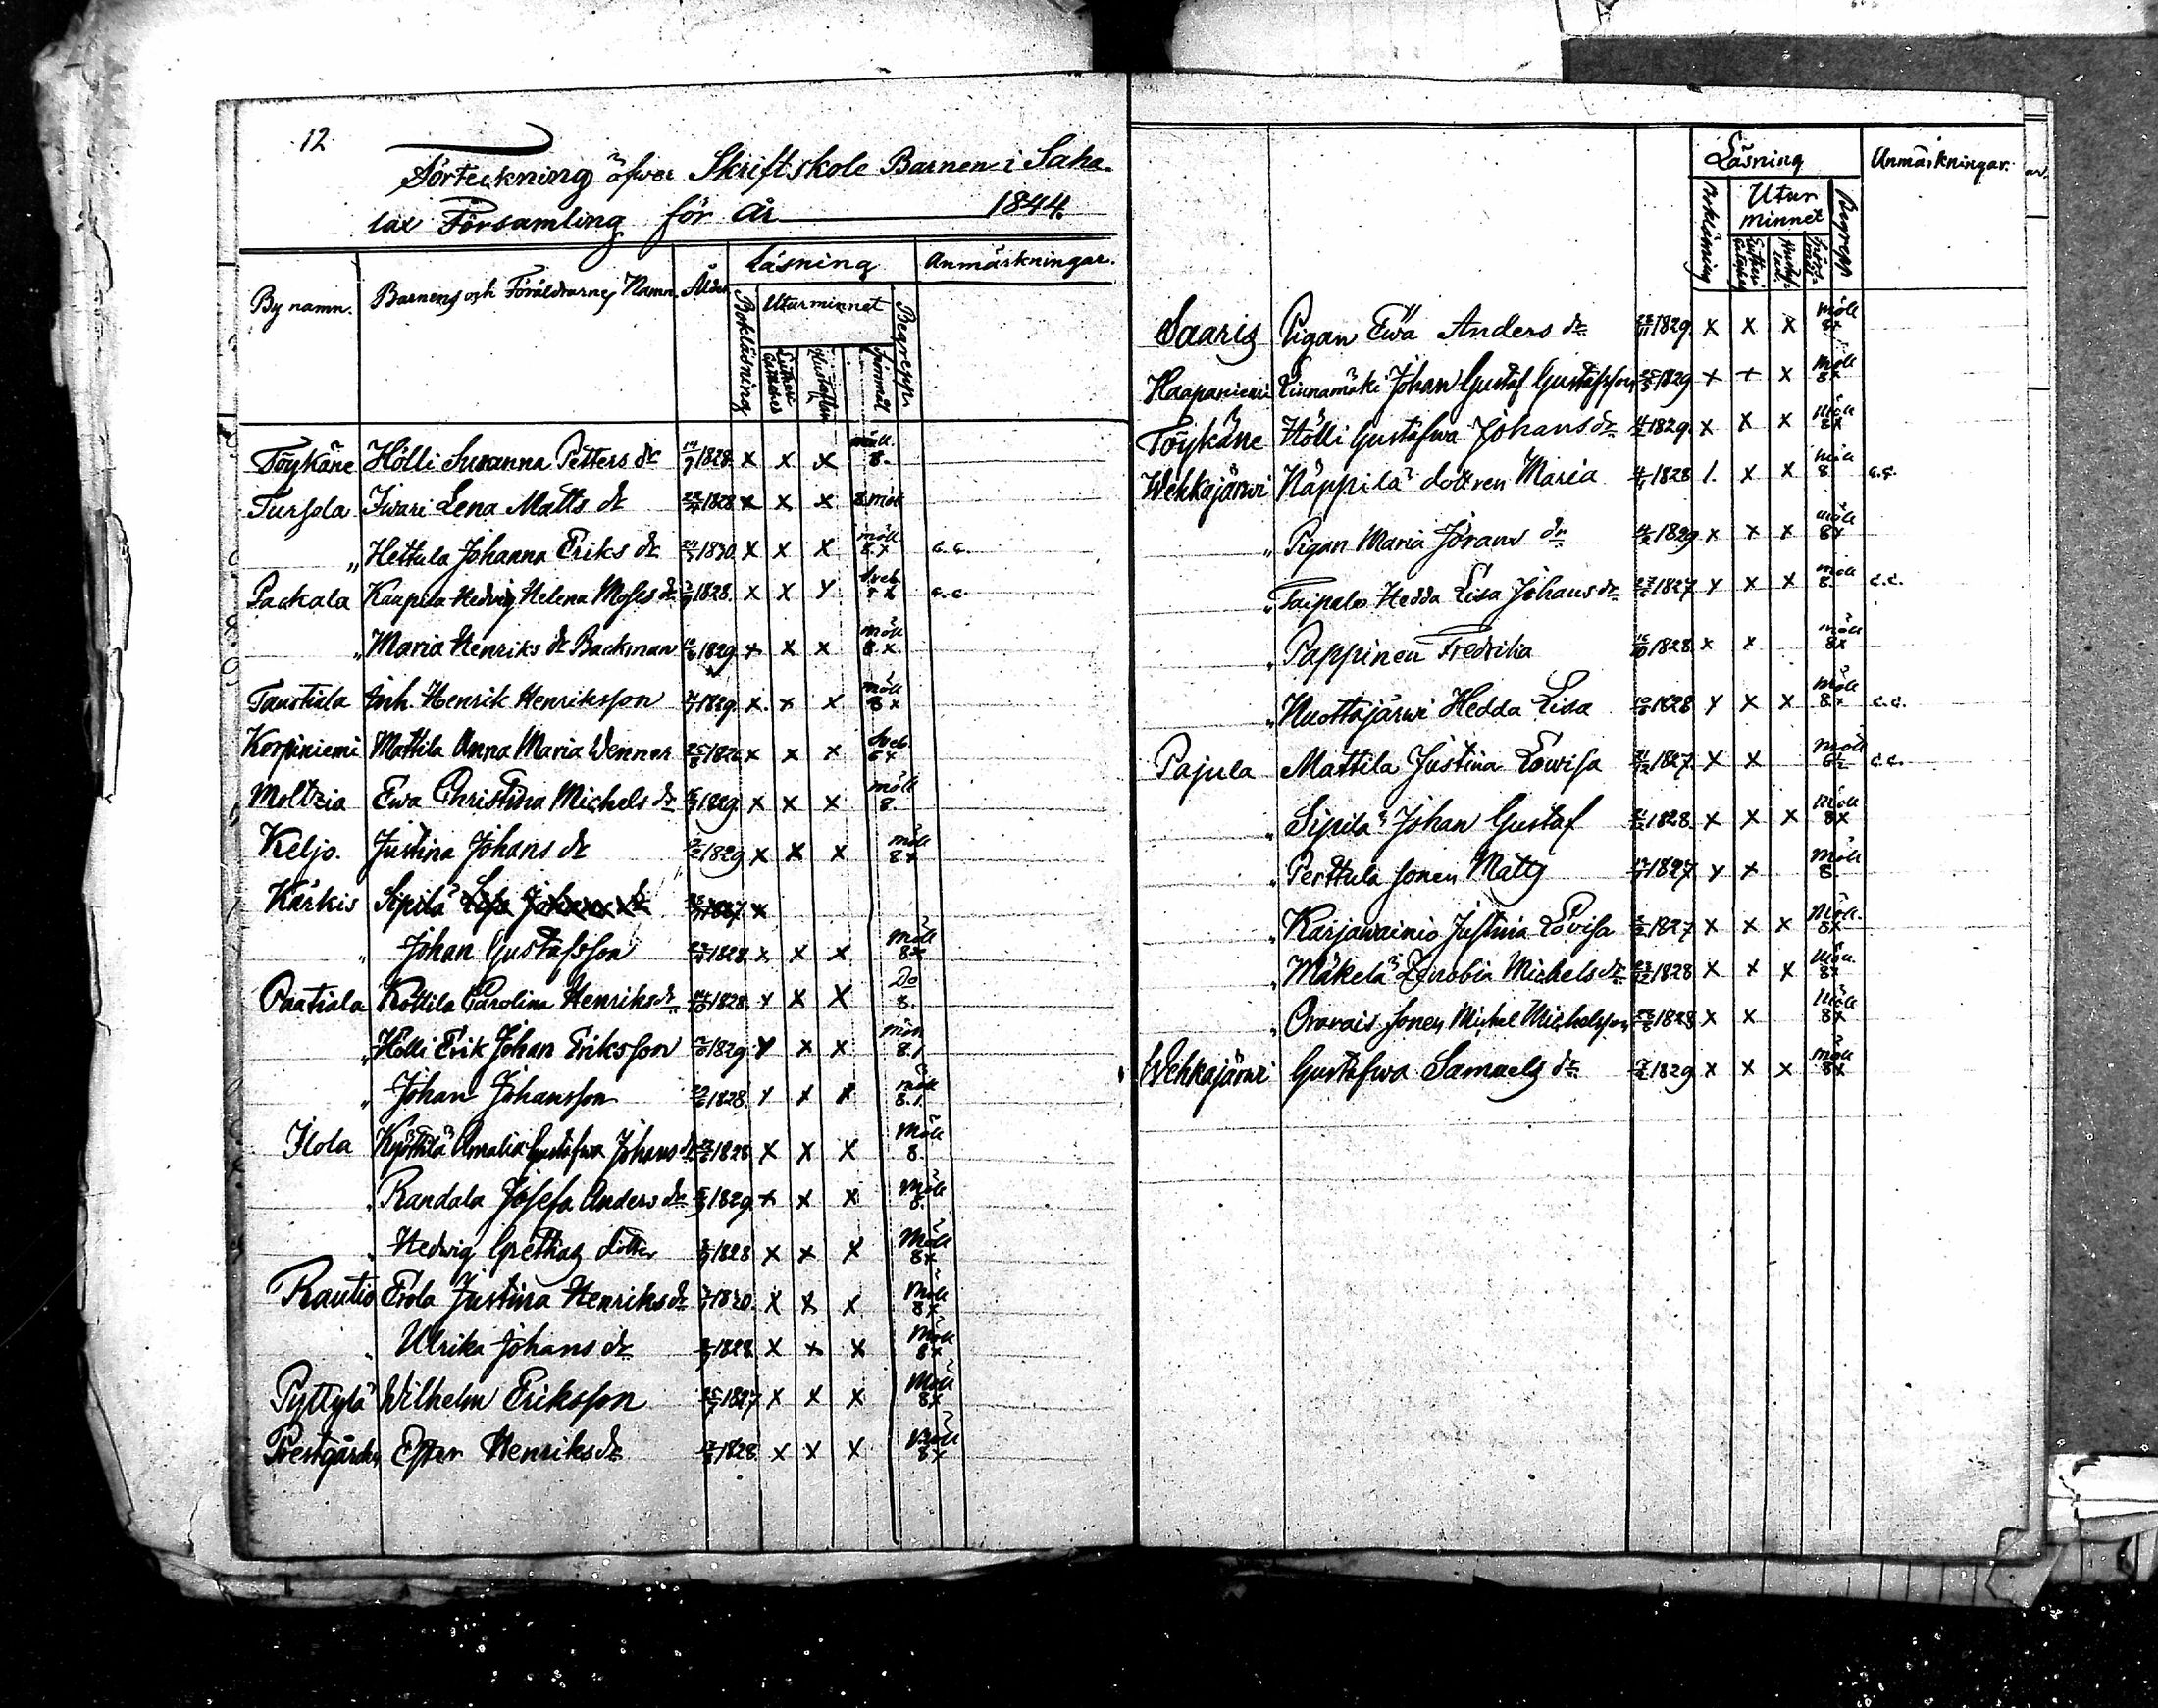 12.
Förteckning öfver Skriftskole Barnen i Saha-
lax Församling för År 1844.
By namn. Barnens och Föräldrarnes Namn. Ålder Läsning Anmärkningar.
Bokläsning Utur minnet Begrepp
Lutheri Cateches Hustaflan Spörsmål
Töykäne Hölli Susanna Petters dr 1828 x x x möll. 8.
Tursola Iwari Lena Matts dr 1828 x x x 8 möll
" Hettula Johanna Eriks dr 1830. x x x möll 8.x c.c.
Packala Kaupila Hedvig Helena Moses dr 1828. x x x Sveb. c.c.
" Maria Henriks dr Backman 1829 x x x möll 8.x.
Taustiala Inh. Henrik Henriksson 1829. x. x x möll 8x
Korpiniemi Mattila Anna Maria Wennor 1826 x x x Sveb. 6x
Moltzia Ewa Christina Michels dr 1829. x x x möll 8.
Keljo. Justina Johans dr 1829 x x x möll 8x
Kärkis Sipilä Lisa Johans dr 1827. x
" Johan Gustafsson 1828 x x x Möll 8x
Paatiala Kottila Carolina Henriksdr 1828. x x x Do 8.
" Hölli Erik Johan Eriksson 1829 x x x möll 8.1
" Johan Johansson 1828. x x x möll 8.1.
Ilola Knöttilä Amalia Gustafwa Johansdr 1828 x x x Möll 8.
" Randala Josefa Anders dr 1829 x x x Möll 8.
" Hedwig Grethas dotter 1828 x x x Möll 8x
Rautio Erola Justina Henriksdr 1830. x x x Möll 8x
" Ulrika Johans dr 1828 x x x Möll 8x
Pyttylä Wilhelm Eriksson 1827 x x x Möll 8x
Prestgården Ester Henriksdr 1828 x x x Möll 8x
Läsning Anmärkningar.
Bokläsning Utur minnet Begrepp
Lutheri Cateches
Saaris Pigan Ewa Anders dr 1829. x x x möll 8x
Haapaniemi Linnamäki Johan Gustaf Gustafsson 1829 x x x Möll 8x
Töykäne Hölli Gustafwa Johansdr 1829. x x x Möll 8x
Wehkajärwi Näppilä dottren Maria 1828 1. x x 8 c.c.
" Pigan Maria Jörans dr 1829 x x x möll 8x
" Taipale Hedda Lisa Johansdr 1827 x x x möll 8. c.c.
" Pappinen Fredrika 1828. x x möll 8x
" Huottajärwi Hedda Lisa 1828 x x x Möll 8x c.c.
Pajula Mattila Justina Lowisa 1827. x x möll 6½ c.c.
" Sipilä Johan Gustaf 1828. x x x Möll 8x
" Perttula sonen Matts 1827 x x Möll 8
" Karjawainio Justina Lovisa 1827 x x x Möll. 8x
" Mäkelä Zenobia Michelsdr 1828 x x x Möll. 8x
" Oravais sonen Michel Michelsson 1828 x x Möll 8x
Wehkajärwi Gustafwa Samuels dr 1829 x x x möll 8x